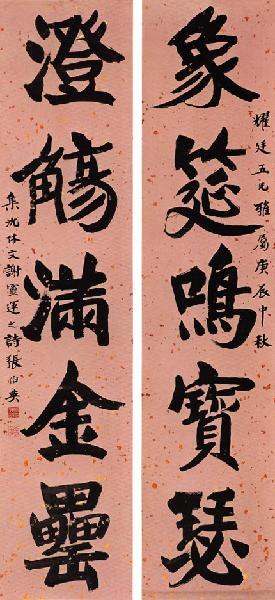 象筵鳴寶瑟
耀廷五兄雅屬庚辰中秋
澄觴滿金罍
集沈休文謝靈運之詩張伯英